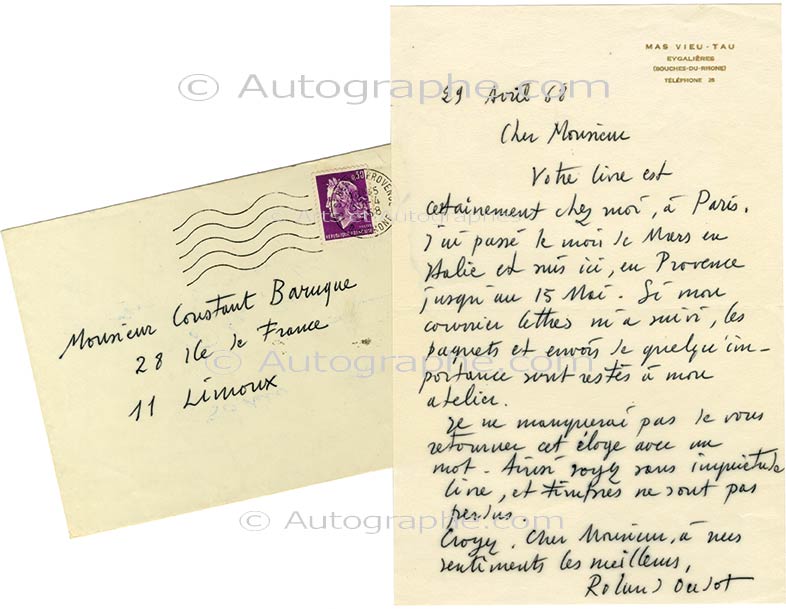 © Autographe.com
MAS VIEU-TAU
EYGALIÈRES
(BOUCHES-DU-RHONE)
TÉLÉPHONE 26
29 Avril 68
Cher Monsieur
Votre livre est
certainement chez moi, à Paris.
J'ai passé le mois de Mars en
Italie et suis ici, en Provence
jusqu'au 15 Mai. Si mon
courrier lettres m'a suivi, les
paquets et envois de quelqu'im-
portance sont restés à mon
atelier.
Je ne manquerai pas de vous
retourner cet éloge avec un
mot. Ainsi soyez sans inquiétude
livre, et timbres ne sont pas
perdus.
Croyez, Cher Monsieur, à mes
sentiments les meilleurs,
Roland Oudot
0,30
PROVENCE
REPUBLIQUE FRANÇAISE
Monsieur Constant Baruque
28 Ile de France
11 Limoux
© Autographe.com
© Autographe.com